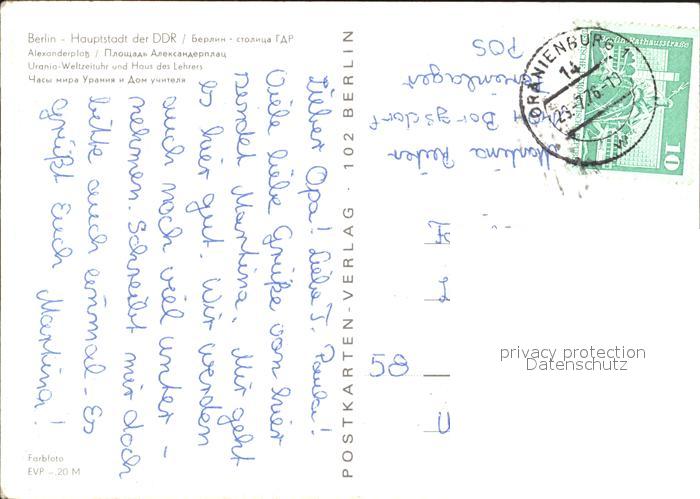 Berlin - Hauptstadt der DDR / Берлин - столица ГДР
Alexanderplatz / Площадь Александерплац
Urania-Weltzeituhr und Haus des Lehrers
Часы мира Урания и Дом учителя
Lieber Opa! Liebe T. Paula!
Viele liebe Grüße von hier
sendet Martina. Mir geht
es hier gut. Wir werden
auch noch viel unter-
nehmen. Schreibt mir doch
bitte auch einmal. Es
grüßt Euch Martina!
Farbfoto
EVP -,20 M
POSTKARTEN-VERLAG · 102 BERLIN
Martina
Borgsdorf
Ferienlager
POS
58
ORANIENBURG 1
14
23.-7.76-10
Berlin, Rathausstraße
10
privacy protection
Datenschutz